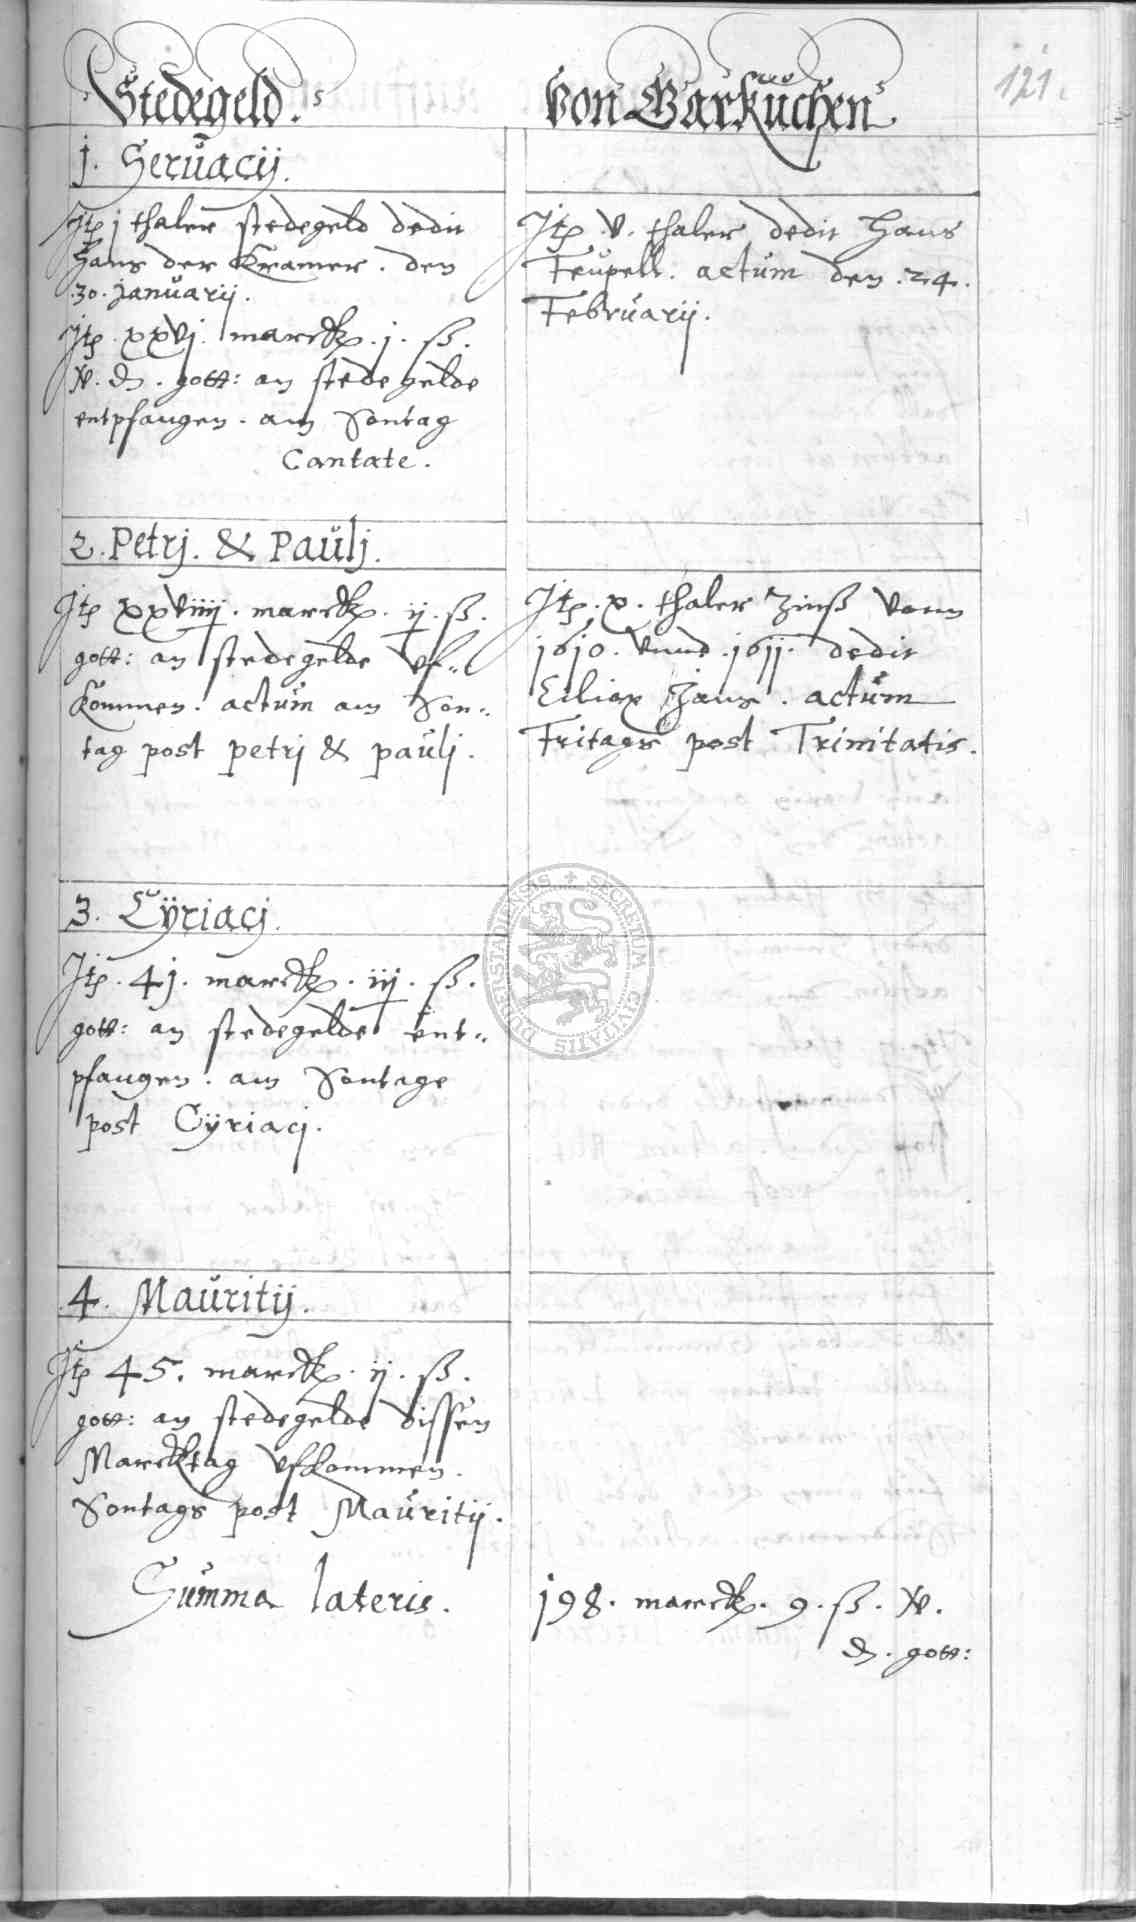 Stedegeld.
Von Garküchen.
121.
1. Servacij.
Jtp j thaler stedegeld dedit
Hans der Kramer. den
.30. Januarij.
Jtp. xxvj. marck. j. ß.
d. gott: an stedegelde
entpfangen. am Sontag
Cantate.
Jtp .v. thaler dedit Hans
Teupell. actum den .24.
Februarij.
2. Petrj. & Paulj.
Jtp xxviiij. marck. ij. ß.
gott: an stedegelde vf-
kommen. actum am Son-
tag post petrj & paulj.
Jtp. x. thaler Zinß vonn
1610. vnnd .1611. dedit
Ciliax Jans. actum
Fritags post Trinitatis.
3. Cÿriacj.
Jtp. 41. marck. iij. ß.
gott: an stedegelde ent-
pfangen. am Sontage
post Cÿriacj.
4. Mauritij.
Jtp 45. marck. ij. ß.
gott: an stedegelde dissen
Marcktag vfkommen.
Sontags post Mauritij.
Summa lateris.
198. marck. 9. ß.
d. gott:
SECRETUM CIVITATIS DUDERSTADIENSIS